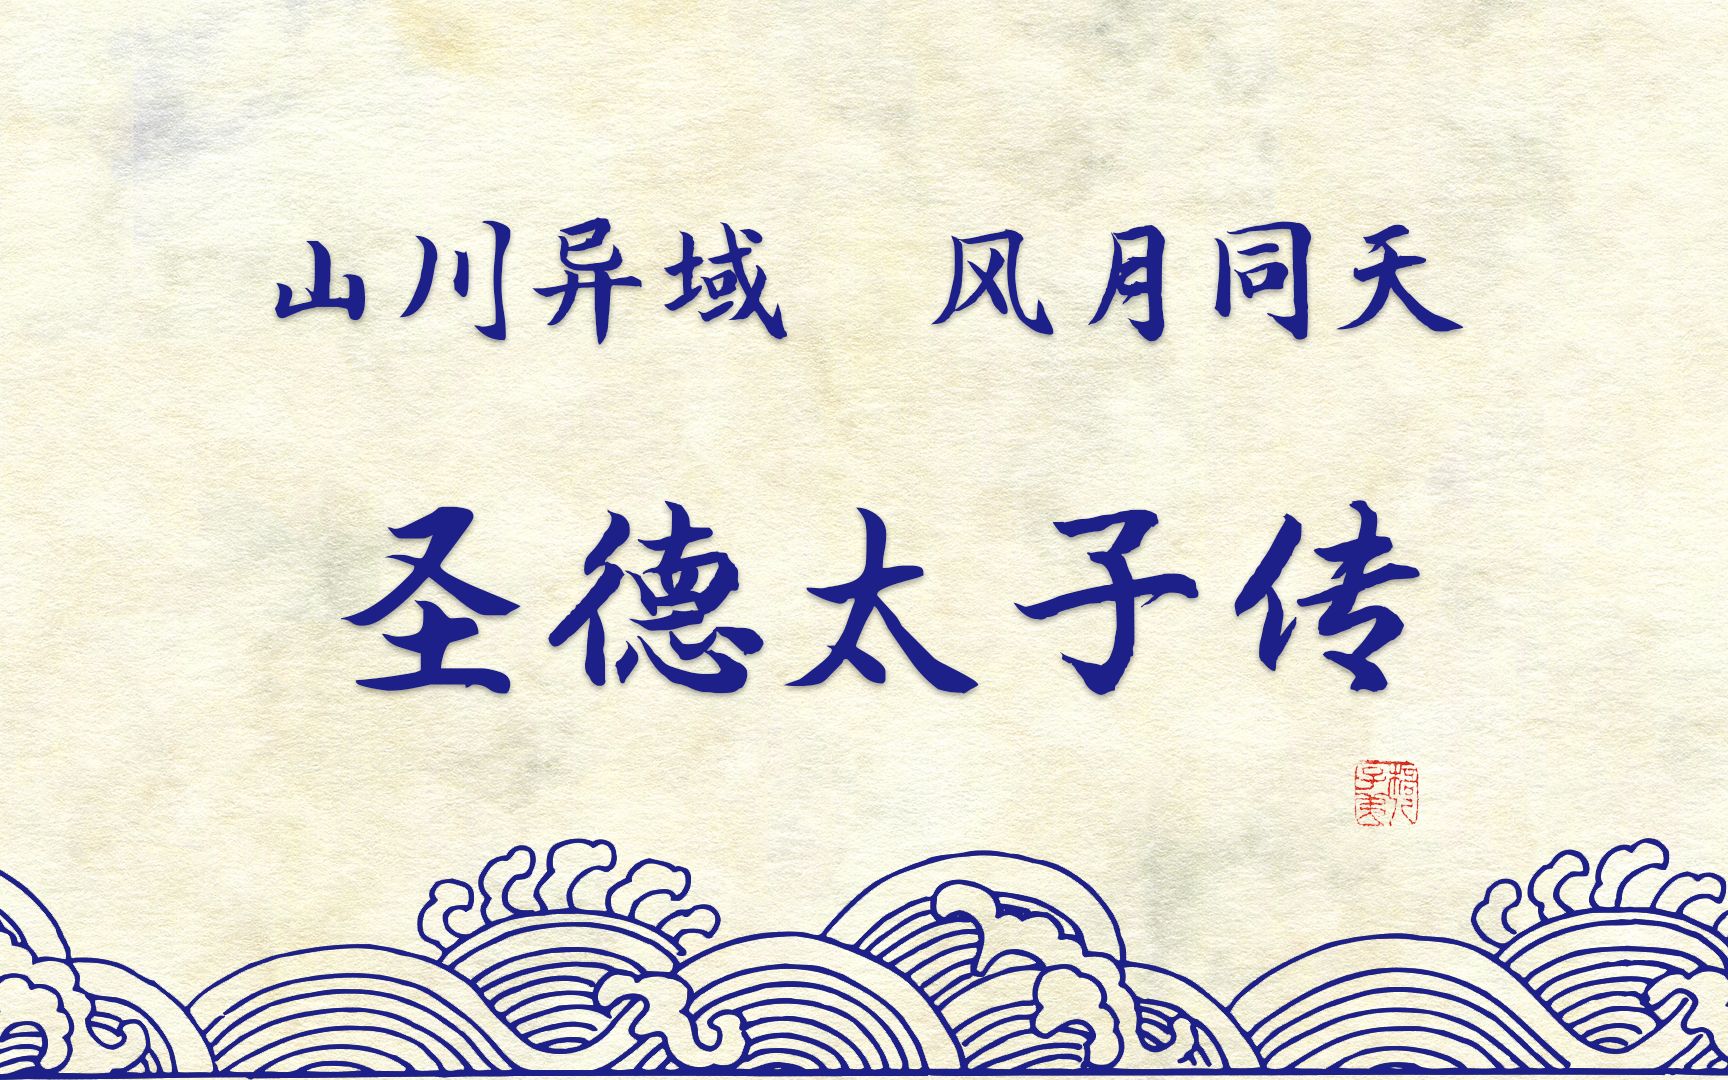 山川异域 风月同天
圣德太子传